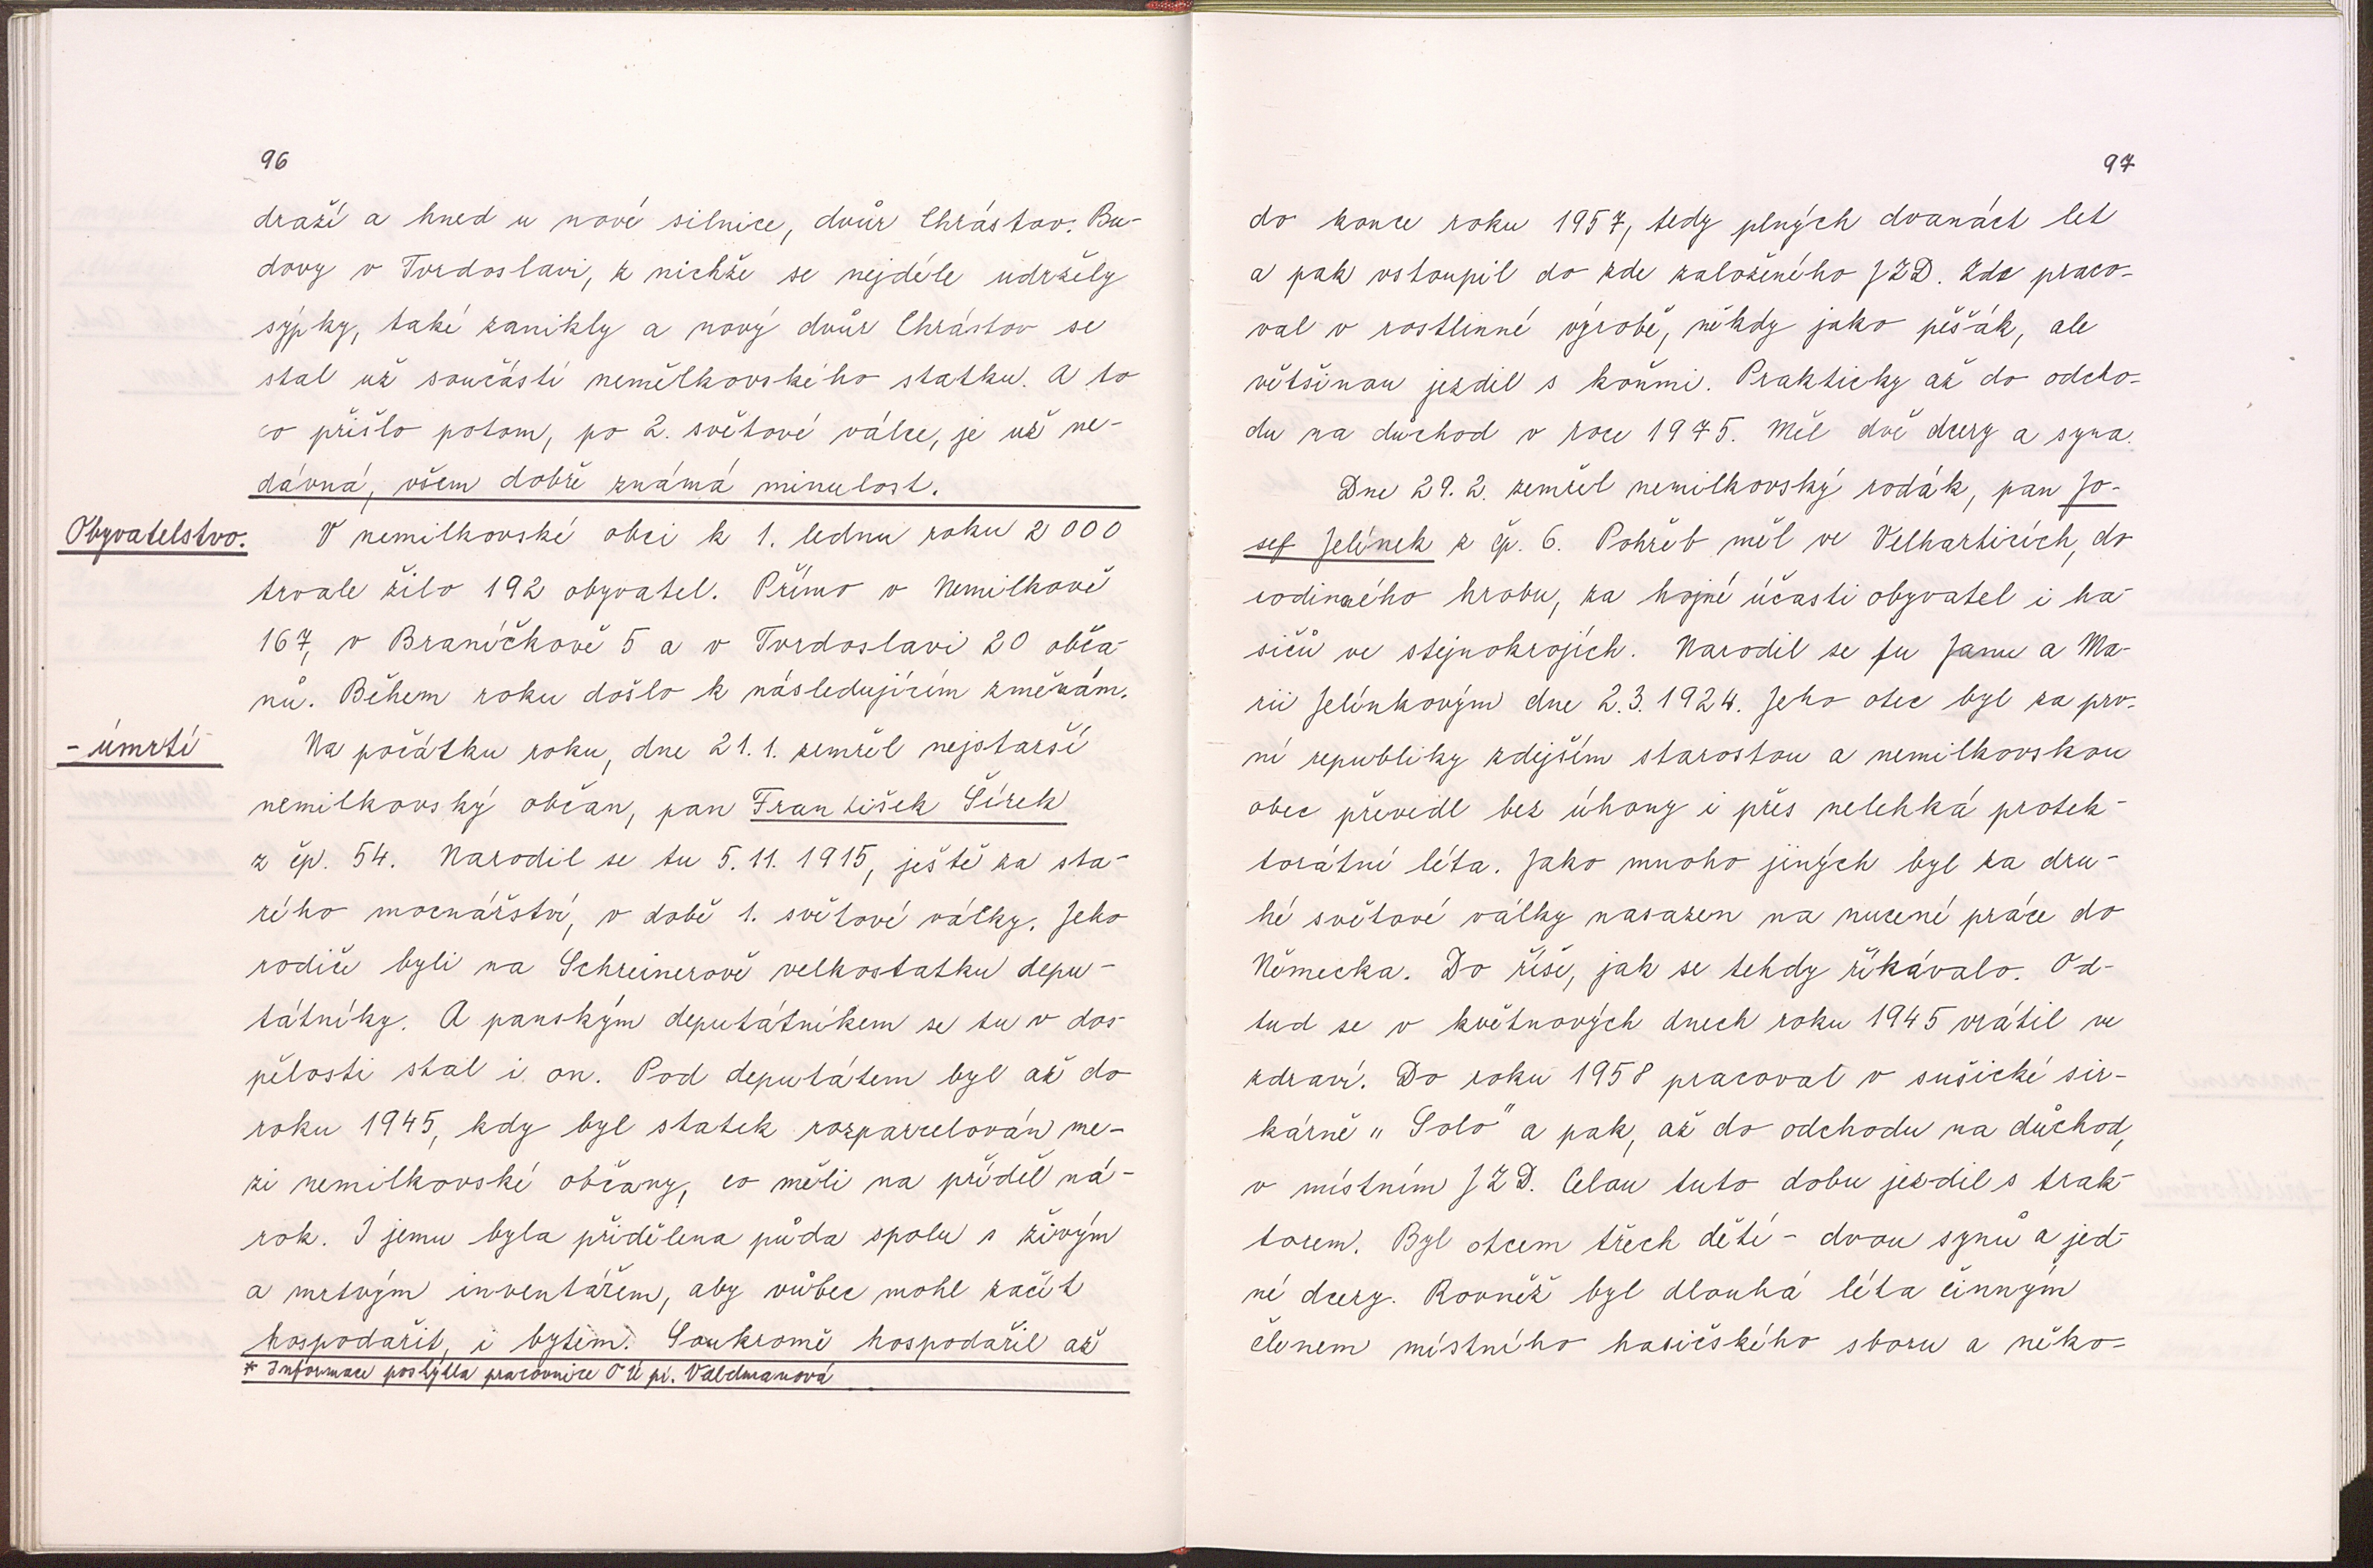 96
draží a hned u nové silnice, dvůr Chrástov. Bu-
dovy v Tvrdoslavi, z nichže se nejdéle udržely
sýpky, také zanikly a nový dvůr Chrástov se
stal už součástí nemělkovského statku. A to
co přišlo potom, po 2. světové válce, je už ne-
dávná, všem dobře známá minulost.
Obyvatelstvo. V nemilkovské obci k 1. lednu roku 2000
trvale žilo 192 obyvatel. Přímo v Nemilkově
167, v Braníčkově 5 a v Tvrdoslavi 20 obča-
nů. Během roku došlo k následujícím změnám.
- úmrtí Na počátku roku, dne 21.1. zemřel nejstarší
nemilkovský občan, pan František Šírek
z čp. 54. Narodil se tu 5.11. 1915, ještě za sta-
rého mocnářství, v době 1. světové války. Jeho
rodiče byli na Schreinerově velkostatku depu-
tátníky. A panským deputátníkem se tu v dos-
pělosti stal i on. Pod deputátem byl až do
roku 1945, kdy byl statek rozparcelován me-
zi nemilkovské občany, co měli na příděl ná-
rok. I jemu byla přidělena půda spolu s živým
a mrtvým inventářem, aby vůbec mohl začít
hospodařit, i bytem. Soukromě hospodařil až
* Informace poskytla pracovnice OÚ pí. Valdmanová
97
do konce roku 1957, tedy plných dvanáct let
a pak vstoupil do zde založeného JZD. Zde praco-
val v rostlinné výrobě, někdy jako pěšák, ale
většinou jezdil s koňmi. Prakticky až do odcho-
du na důchod v roce 1975. Měl dvě dcery a syna.
Dne 29.2. zemřel nemilkovský rodák, pan Jo-
sef Jelínek z čp. 6. Pohřeb měl ve Velharticích, do
rodinného hrobu, za hojné účasti obyvatel i ha-
sičů ve stejnokrojích. Narodil se tu Janu a Ma-
rii Jelínkovým dne 2.3.1924. Jeho otec byl za prv-
ní republiky zdejším starostou a nemilkovskou
obec převedl bez úhony i přes nelehká protek-
torátní léta. Jako mnoho jiných byl za dru-
hé světové války nasazen na nucené práce do
Německa. Do říše, jak se tehdy říkávalo. Od-
tud se v květnových dnech roku 1945 vrátil ve
zdraví. Do roku 1958 pracoval v sušické sir-
kárně „Solo" a pak, až do odchodu na důchod,
v místním JZD. Celou tuto dobu jezdil s trak-
torem. Byl otcem třech dětí - dvou synů a jed-
né dcery. Rovněž byl dlouhá léta činným
členem místního hasičského sboru a něko-